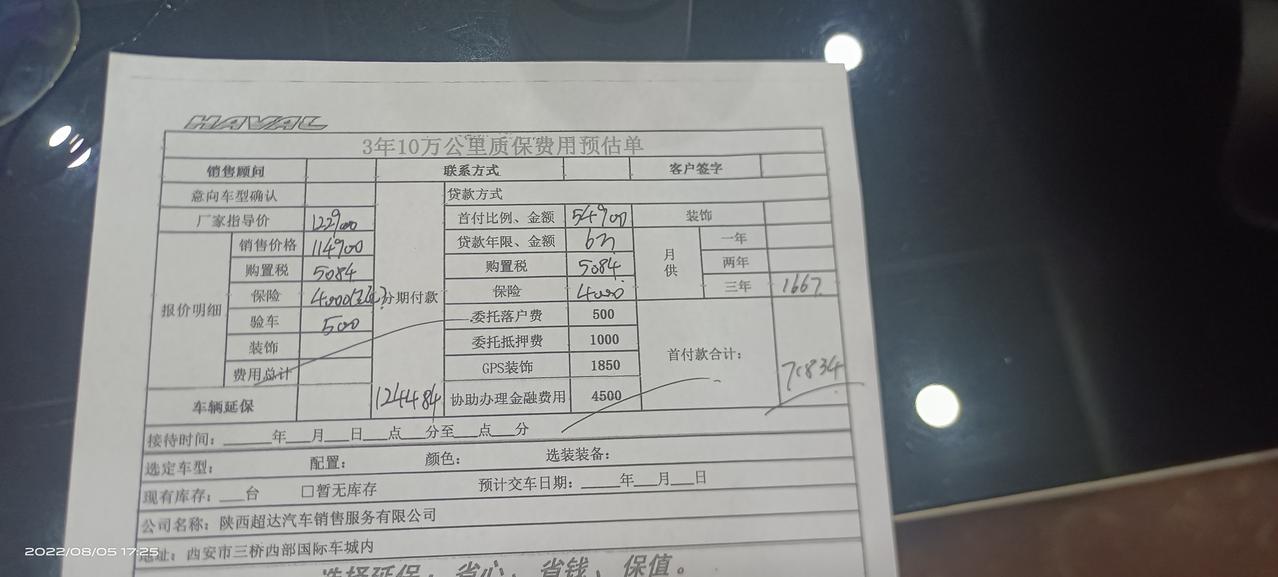 HAVAL
3年10万公里质保费用预估单
销售顾问 联系方式 客户签字
意向车型确认 贷款方式
厂家指导价 122900 首付比例、金额 54900 装饰
报价明细 销售价格 114900 贷款年限、金额 6万 月供 一年
购置税 5084 购置税 5084 两年
保险 4000 分期付款 保险 4000 三年 1667
验车 500 委托落户费 500
装饰 委托抵押费 1000 首付款合计:
费用总计 GPS装饰 1850 70834
车辆延保 124484 协助办理金融费用 4500
接待时间:______年___月___日___点___分至___点___分
选定车型: 配置: 颜色: 选装装备:
现有库存:___台 □暂无库存 预计交车日期:_____年___月___日
公司名称:陕西超达汽车销售服务有限公司
地址:西安市三桥西部国际车城内
选择延保,省心、省钱、保值。
2022/08/05 17:25